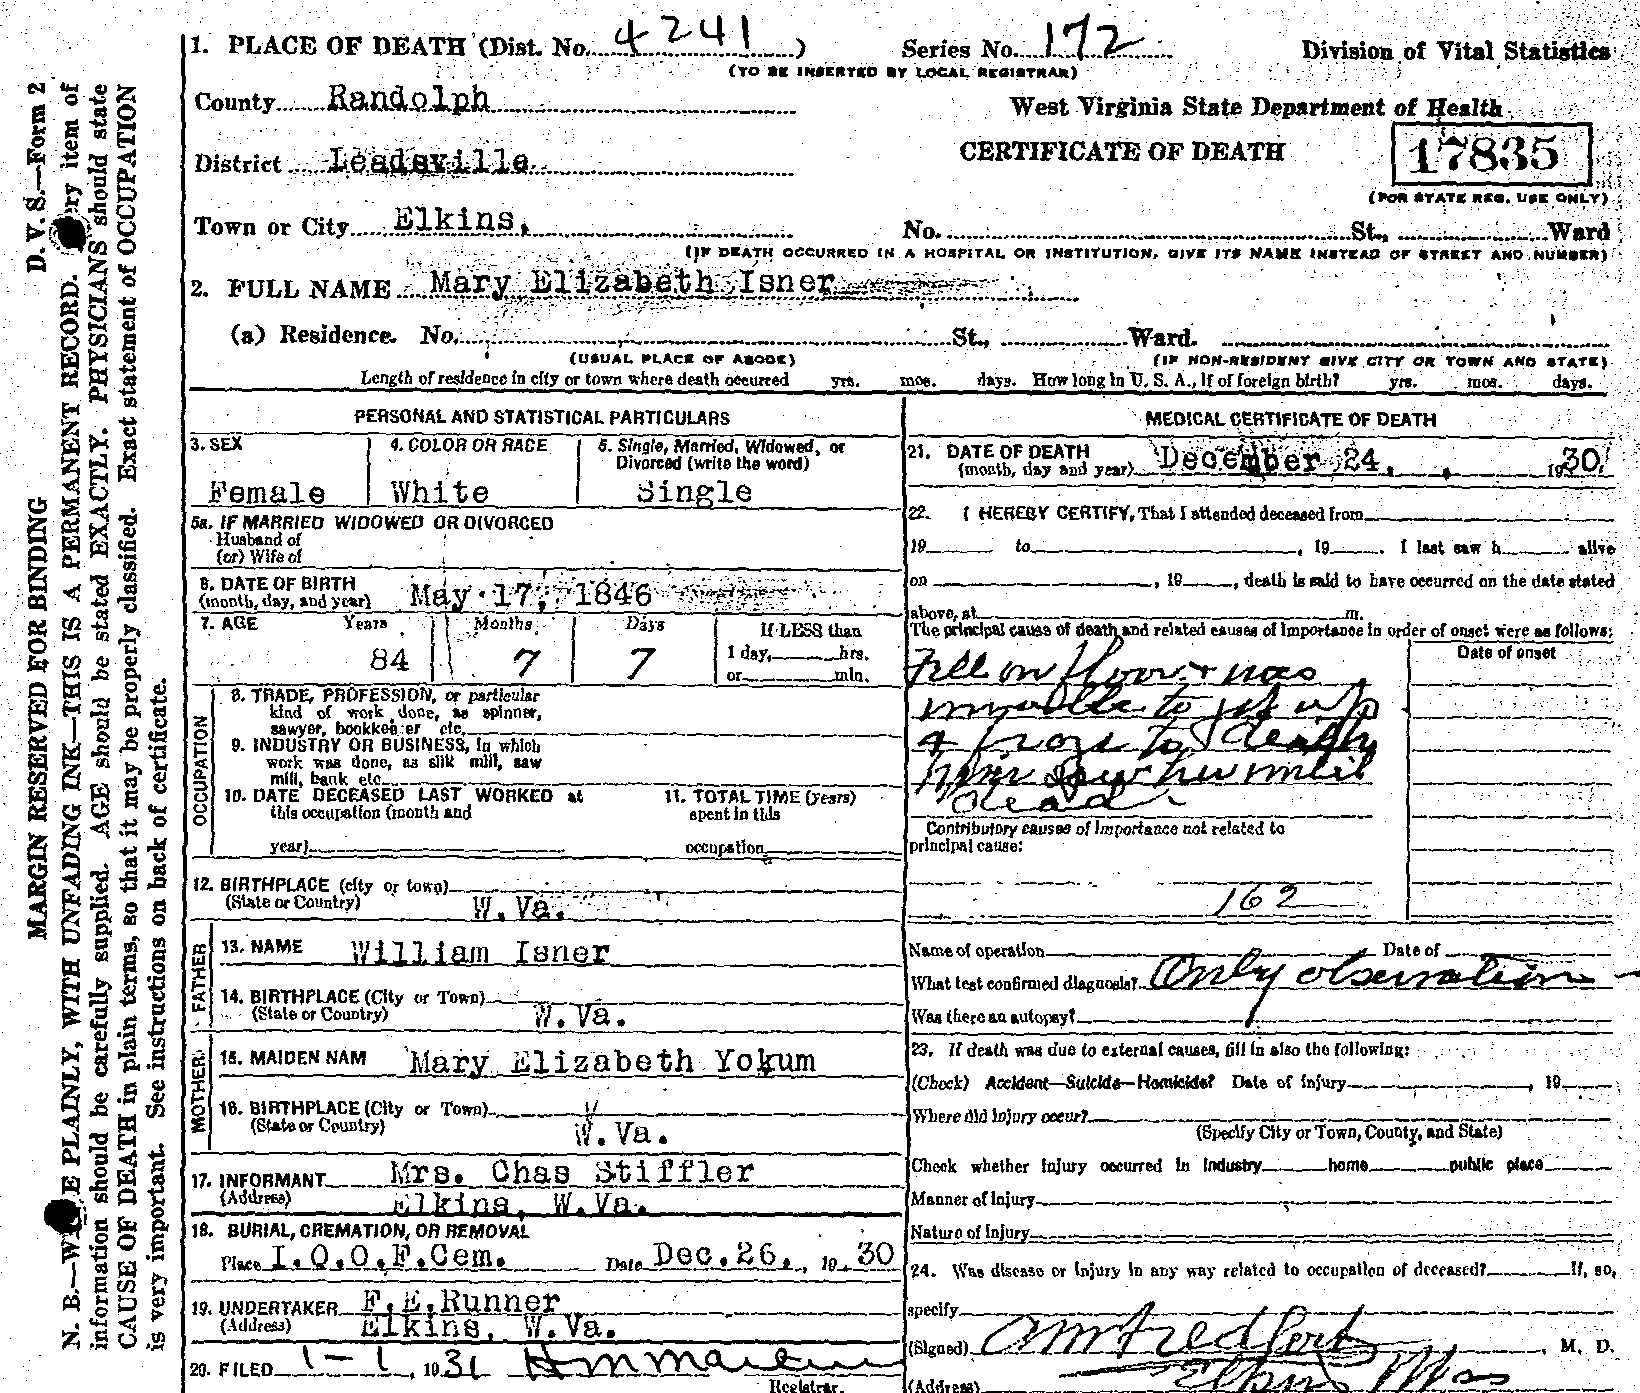 1. PLACE OF DEATH (Dist. No. 4241) Series No. 172 Division of Vital Statistics
(TO BE INSERTED BY LOCAL REGISTRAR)
County Randolph West Virginia State Department of Health
District Leadsville CERTIFICATE OF DEATH 17835
(FOR STATE REG. USE ONLY)
Town or City Elkins. No. St., Ward
(IF DEATH OCCURRED IN A HOSPITAL OR INSTITUTION, GIVE ITS NAME INSTEAD OF STREET AND NUMBER)
2. FULL NAME Mary Elizabeth Isner
(a) Residence. No. St., Ward.
(USUAL PLACE OF ABODE) (IF NON-RESIDENT GIVE CITY OR TOWN AND STATE)
Length of residence in city or town where death occurred yrs. mos. days. How long in U. S. A., if of foreign birth? yrs. mos. days.
PERSONAL AND STATISTICAL PARTICULARS
3. SEX 4. COLOR OR RACE 5. Single, Married, Widowed, or
Divorced (write the word)
Female White Single
5a. IF MARRIED WIDOWED OR DIVORCED
Husband of
(or) Wife of
6. DATE OF BIRTH
(month, day, and year) May 17, 1846
7. AGE Years Months Days If LESS than
84 7 7 1 day, hrs.
or min.
OCCUPATION
8. TRADE, PROFESSION, or particular
kind of work done, as spinner,
sawyer, bookkeeper etc.
9. INDUSTRY OR BUSINESS, in which
work was done, as silk mill, saw
mill, bank etc.
10. DATE DECEASED LAST WORKED at 11. TOTAL TIME (years)
this occupation (month and spent in this
year) occupation
12. BIRTHPLACE (city or town)
(State or Country) W.Va.
FATHER
13. NAME William Isner
14. BIRTHPLACE (City or Town)
(State or Country) W.Va.
MOTHER
15. MAIDEN NAM Mary Elizabeth Yokum
16. BIRTHPLACE (City or Town)
(State or Country) W.Va.
17. INFORMANT Mrs. Chas Stiffler
(Address) Elkins, W.Va.
18. BURIAL, CREMATION, OR REMOVAL
Place I.O.O.F.Cem. Date Dec.26., 19 30
19. UNDERTAKER F.E.Runner
(Address) Elkins, W.Va.
20. FILED 1-1, 1931
Registrar.
MEDICAL CERTIFICATE OF DEATH
21. DATE OF DEATH
(month, day and year) December 24, 1930.
22. I HEREBY CERTIFY, That I attended deceased from
19 to , 19 . I last saw h alive
on , 19 , death is said to have occurred on the date stated
above, at m.
The principal cause of death and related causes of importance in order of onset were as follows:
Date of onset
Fell on floor & was
to get up
& froze to death
dead
Contributory causes of importance not related to
principal cause:
162
Name of operation Date of
What test confirmed diagnosis? Only observation
Was there an autopsy?
23. If death was due to external causes, fill in also the following:
(Check) Accident—Suicide—Homicide? Date of injury , 19
Where did injury occur?
(Specify City or Town, County, and State)
Check whether injury occurred in industry home public place
Manner of injury
Nature of injury
24. Was disease or injury in any way related to occupation of deceased? If, so,
specify
(Signed) , M. D.
(Address) Elkins
MARGIN RESERVED FOR BINDING D. V. S.—Form 2
N. B.—W E PLAINLY, WITH UNFADING INK—THIS IS A PERMANENT RECORD. ry item of
information should be carefully supplied. AGE should be stated EXACTLY. PHYSICIANS should state
CAUSE OF DEATH in plain terms, so that it may be properly classified. Exact statement of OCCUPATION
is very important. See instructions on back of certificate.